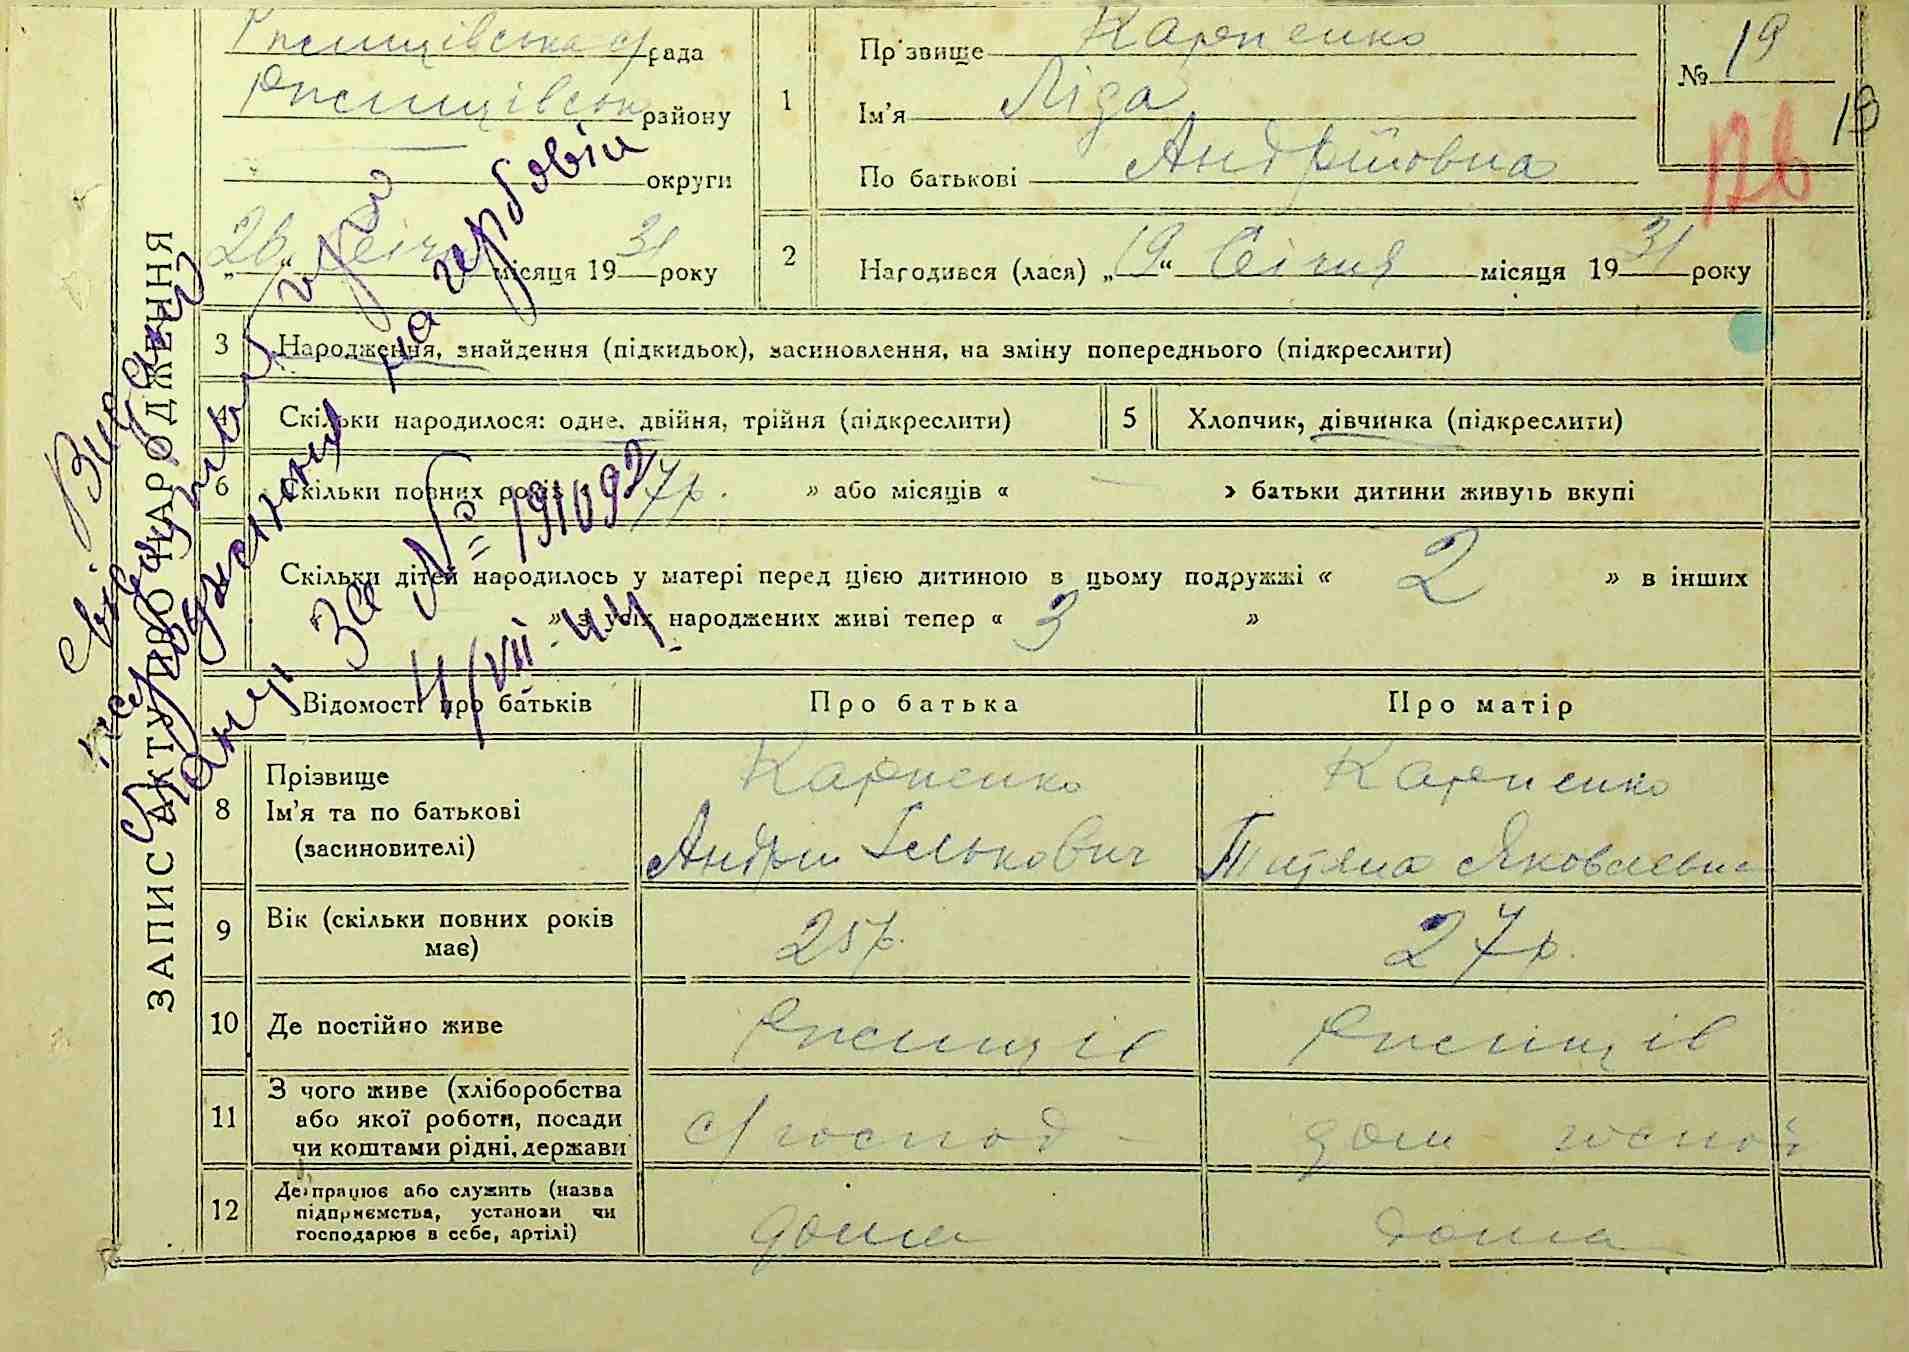 Ржищівська с/рада
Ржищівськ району
округи
„26“ Січня місяця 1931 року
1
Прізвище Карпенко
Ім'я Ліда
По батькові Андріївна
№ 19
19
126
2
Народився (лася) „19“ Січня місяця 1931 року
ЗАПИС АКТУ ПРО НАРОДЖЕННЯ
3 Народження, знайдення (підкидьок), засиновлення, на зміну попереднього (підкреслити)
4 Скільки народилося: одне, двійня, трійня (підкреслити)
5 Хлопчик, дівчинка (підкреслити)
6 Скільки повних років 7р. » або місяців « — » батьки дитини живуть вкупі
Скільки дітей народилось у матері перед цією дитиною в цьому подружжі « 2 » в інших
« » з усіх народжених живі тепер « 3 »
Видано
свідоцтво
народження на гербовій
за № 191092
4/VII-44
Відомості про батьків
Про батька
Про матір
8 Прізвище
Ім'я та по батькові
(засиновителі)
Карпенко
Андрій Ількович
Карпенко
Татяна Яковлевна
9 Вік (скільки повних років
має)
25р.
27р.
10 Де постійно живе
Ржищів
Ржищів
11 З чого живе (хліборобства
або якої роботи, посади
чи коштами рідні, держави
с/господ-
дом господ
12 Де працює або служить (назва
підприємства, установи чи
господарює в себе, артілі)
дома
дома